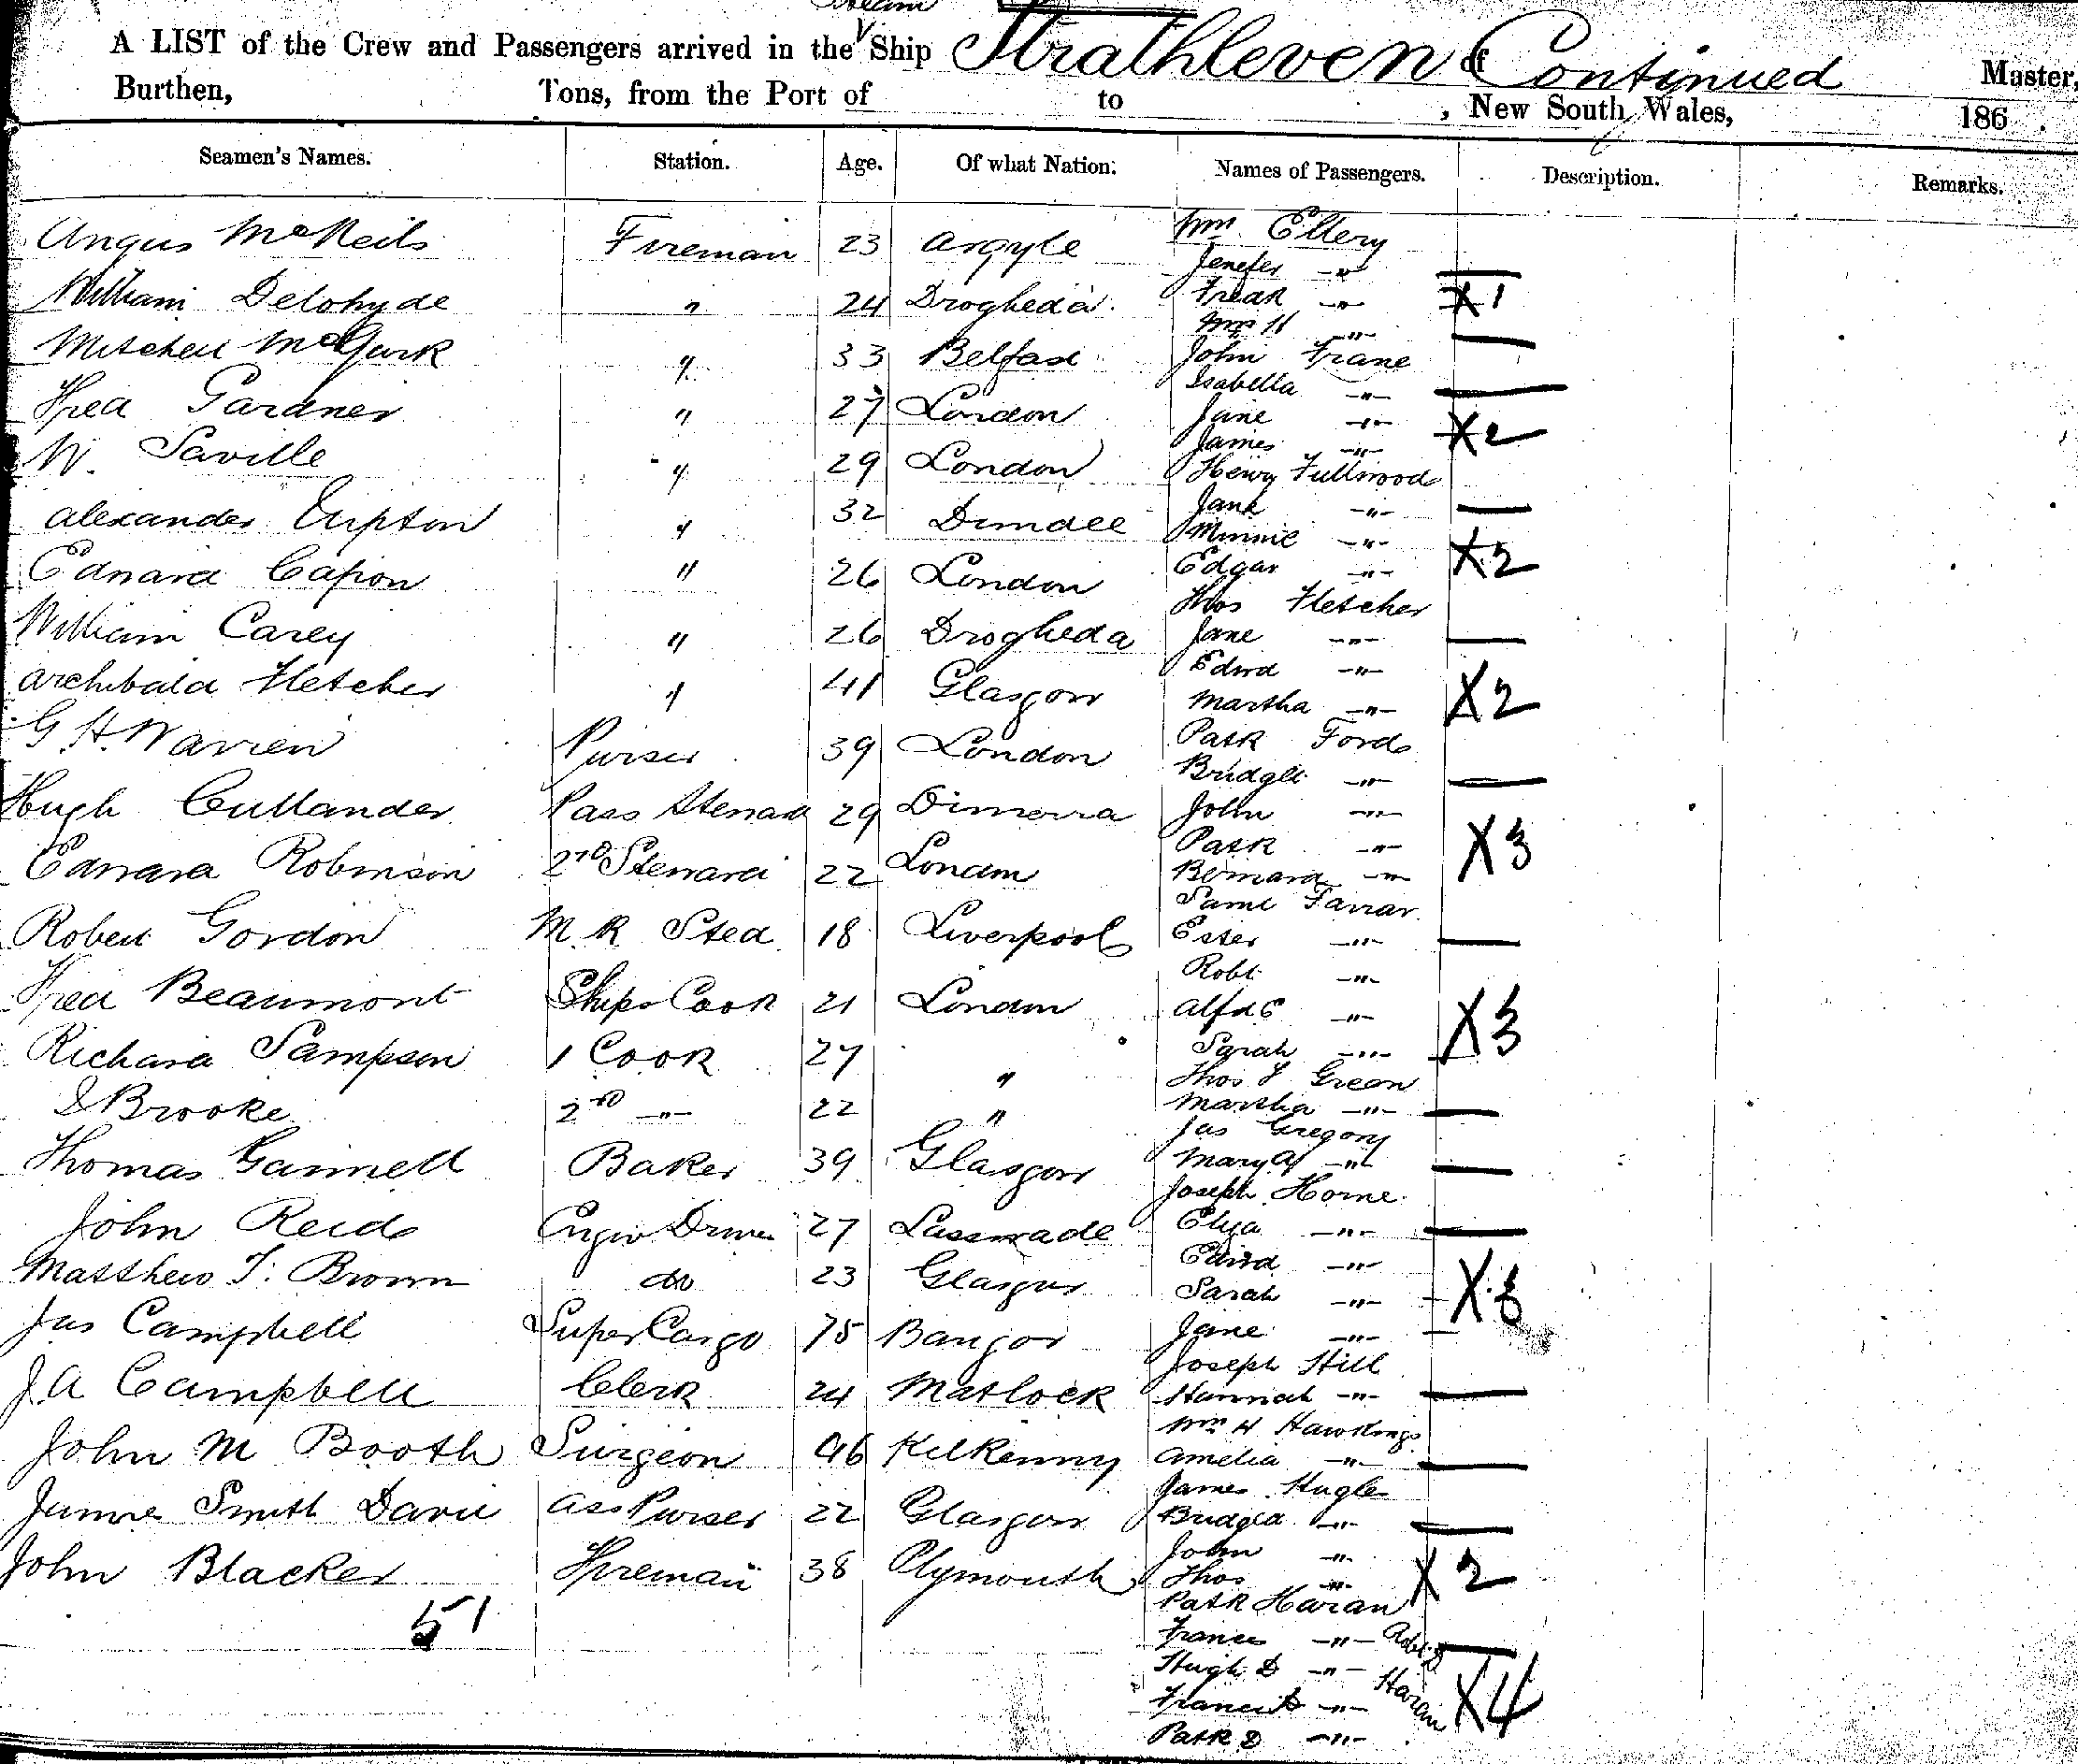 Steam
A LIST of the Crew and Passengers arrived in the Ship Strathleven Continued Master,
Burthen, Tons, from the Port of to , New South Wales, 186
Seamen's Names. Station. Age. Of what Nation. Names of Passengers. Description. Remarks.
Angus McNeils Fireman 23 Argyle
William Delohyde " 24 Drogheda
Mitchell McGurk " 33 Belfast
Fred Gardner " 27 London
W. Saville " 29 London
Alexander Lipton " 32 Dundee
Edward Capon " 26 London
William Carey " 26 Drogheda
Archibald Fletcher " 41 Glasgow
G H Warren Purser 39 London
Hugh Cullander Pass Steward 29
Edward Robinson 2nd Steward 22 London
Robert Gordon M. R Sted 18 Liverpool
Fred Beaumont Ships Cook 21 London
Richard Sampson 1 Cook 27 "
S Brooke 2nd -"- 22 "
Thomas Gannell Baker 39 Glasgow
John Reid Engin Driver 27 Lasswade
Matthew T. Brown do 23 Glasgow
Jas Campbell Super Cargo 75 Bangor
J A Campbell Clerk 24 Matlock
John M Booth Surgeon 46 Kilkenny
James Smith Davie Ass Purser 22 Glasgow
John Blacker Fireman 38 Plymouth
51
Wm Ellery
Jenefer -"-
Fredk -"- X1
Wm H -"-
John Frane
Isabella -"-
Jane -"-
James -"- X2
Henry Fullwood
Jane -"-
Minnie -"-
Edgar -"- X2
Thos Fletcher
Jane -"-
Edwd -"-
Martha -"- X2
Patk Ford
Bridget -"-
John -"-
Patk -"- X3
Bernard -"-
Saml Farrar
Ester -"-
Robt -"-
Alfd E -"- X3
Sarah -"-
Thos J Green
Martha -"-
Jas Gregory
Mary A -"-
Joseph Horne
Eliza -"-
Edwd -"-
Sarah -"- X3
Jane -"-
Joseph Hill
Hannah -"-
Wm H Hawkings
Amelia -"-
James Hugle
Bridget -"-
John -"-
Thos -"- X2
Patk Haran
Frances -"- Robt D
Hugh D -"- Haran
Francis D -"- X4
Patk D -"-